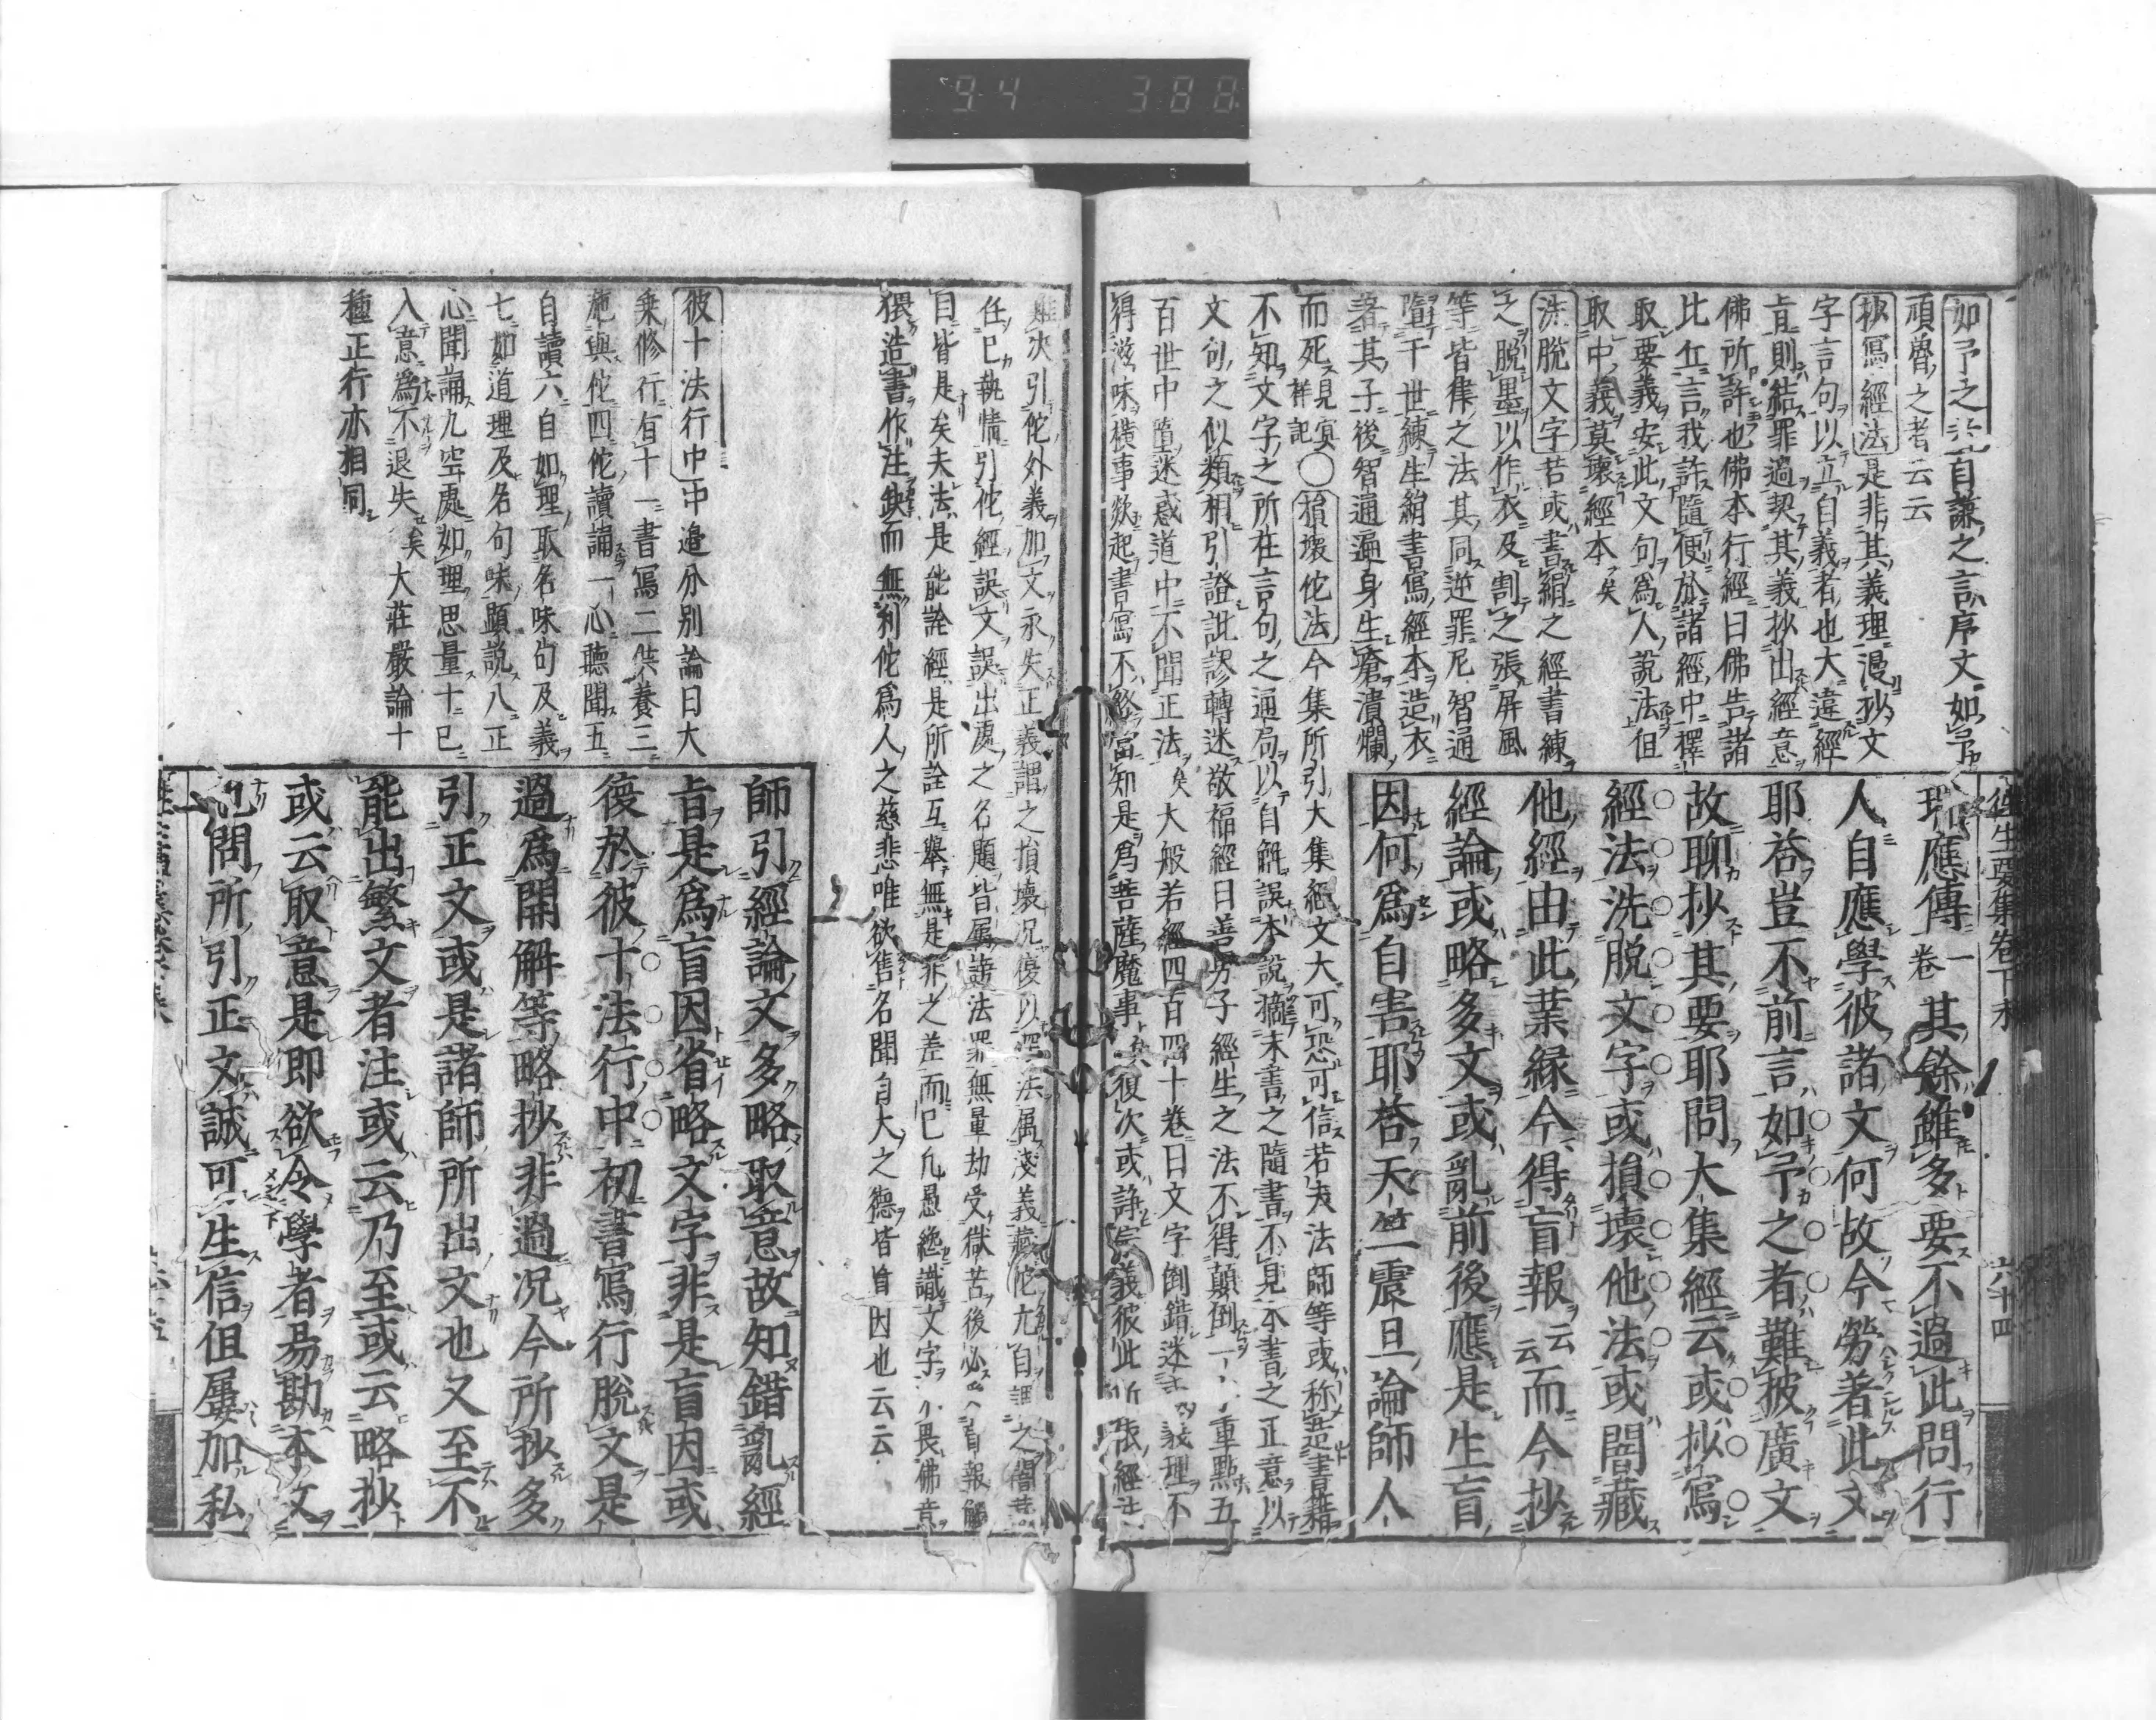 94 388
如予之者自謙之言序文如予
頑魯之者云云
抄寫經法是非其義理漫抄文
字言句以立自義者也大違經
旨則結罪過契其義抄出經意
佛所許也佛本行經曰佛告諸
比丘言我許隨便於諸經中擇
取要義安此文句爲人說法但
取中義莫壞經本矣
洗脫文字苦或書絹之經書練
之脫墨以作衣及割之張屏風
等皆集之法其同逆罪尼智通
隋干世練生絹書寫經本造衣
著其子後智通遍身生瘡潰爛
而死見冥祥記○損壞佗法今集所引大集經文大可恐可信若夫法師等或称是書籍
不知文字之所在言句之通局以自解誤本說摘末書之隨書不見本書之正意以
文句之似類相引證訛謬轉迷敬福經曰善男子經生之法不得顛倒一重點五
百世中墮迷惑道中不聞正法矣大般若經四百四十卷曰文字倒錯迷義理不
得滋味横事欻起書寫不終當知是爲菩薩魔事矣復次或諍宗義彼此所張經
往生要集卷下末
六十四
瑞應傳一卷其餘雖多要不過此問行
人自應學彼諸文何故今勞著此文
耶荅豈不前言如予之者難披廣文
故聊抄其要耶問大集經云或抄寫
經法洗脫文字或損壞他法或闇藏
他經由此業緣今得盲報云云而今抄
經論或略多文或亂前後應是生盲
因何爲自害耶荅天竺震旦論師人
難次引佗外義加文永失正義謂之損壞况復以法属淺義藏佗尤自謂之闇藏
任已執情引佗經誤文誤出處之名題皆属謗法罪無量劫受獄苦後必盲報觸
目皆是矣夫法是能詮經是所詮互舉無是非之差而已凡愚纔識文字不畏佛意
猥造書作注無而無利佗爲人之慈悲唯欲售名聞自大之德皆盲因也云云
彼十法行中中邉分別論曰大
乗修行有十一書寫二供養三
施與佗四佗讀誦一心聽聞五
自讀六自如理取名味句及義
七如道理及名句味顯說八正
心聞誦九空處如理思量十已
入意爲不退失矣大莊嚴論十
種正行亦相同
師引經論文多略取意故知錯亂經
旨是爲盲因省略文字非是盲因或
復於彼十法行中初書寫行脫文是
過爲開解等略抄非過况今所抄多
引正文或是諸師所出文也又至不
能出繁文者注或云乃至或云略抄
或云取意是即欲令學者易勘本文
也問所引正文誠可生信但屢加私